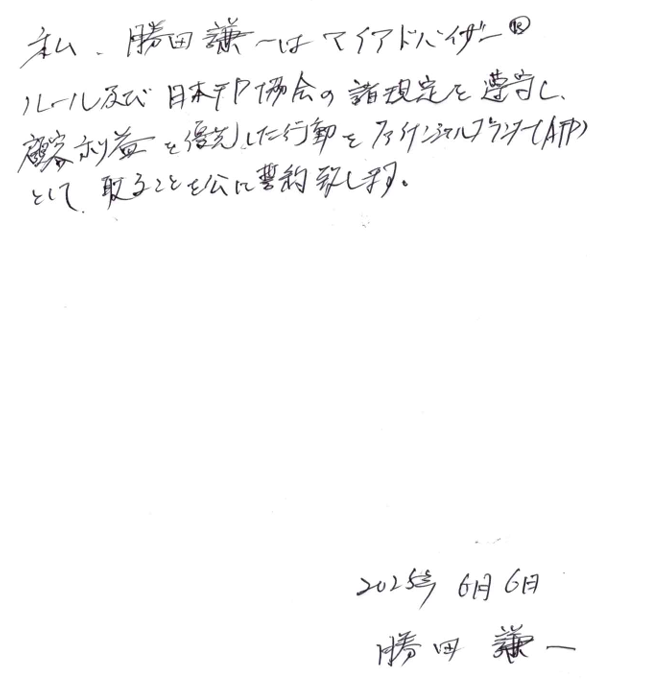 私、勝田謙一はマイアドバイザー®
ルール及び日本FP協会の諸規定を遵守し、
顧客利益を優先した行動をファイナンシャルプランナー(AFP)
として取ることを公に誓約致します。
2025年 6月6日
勝田 謙一